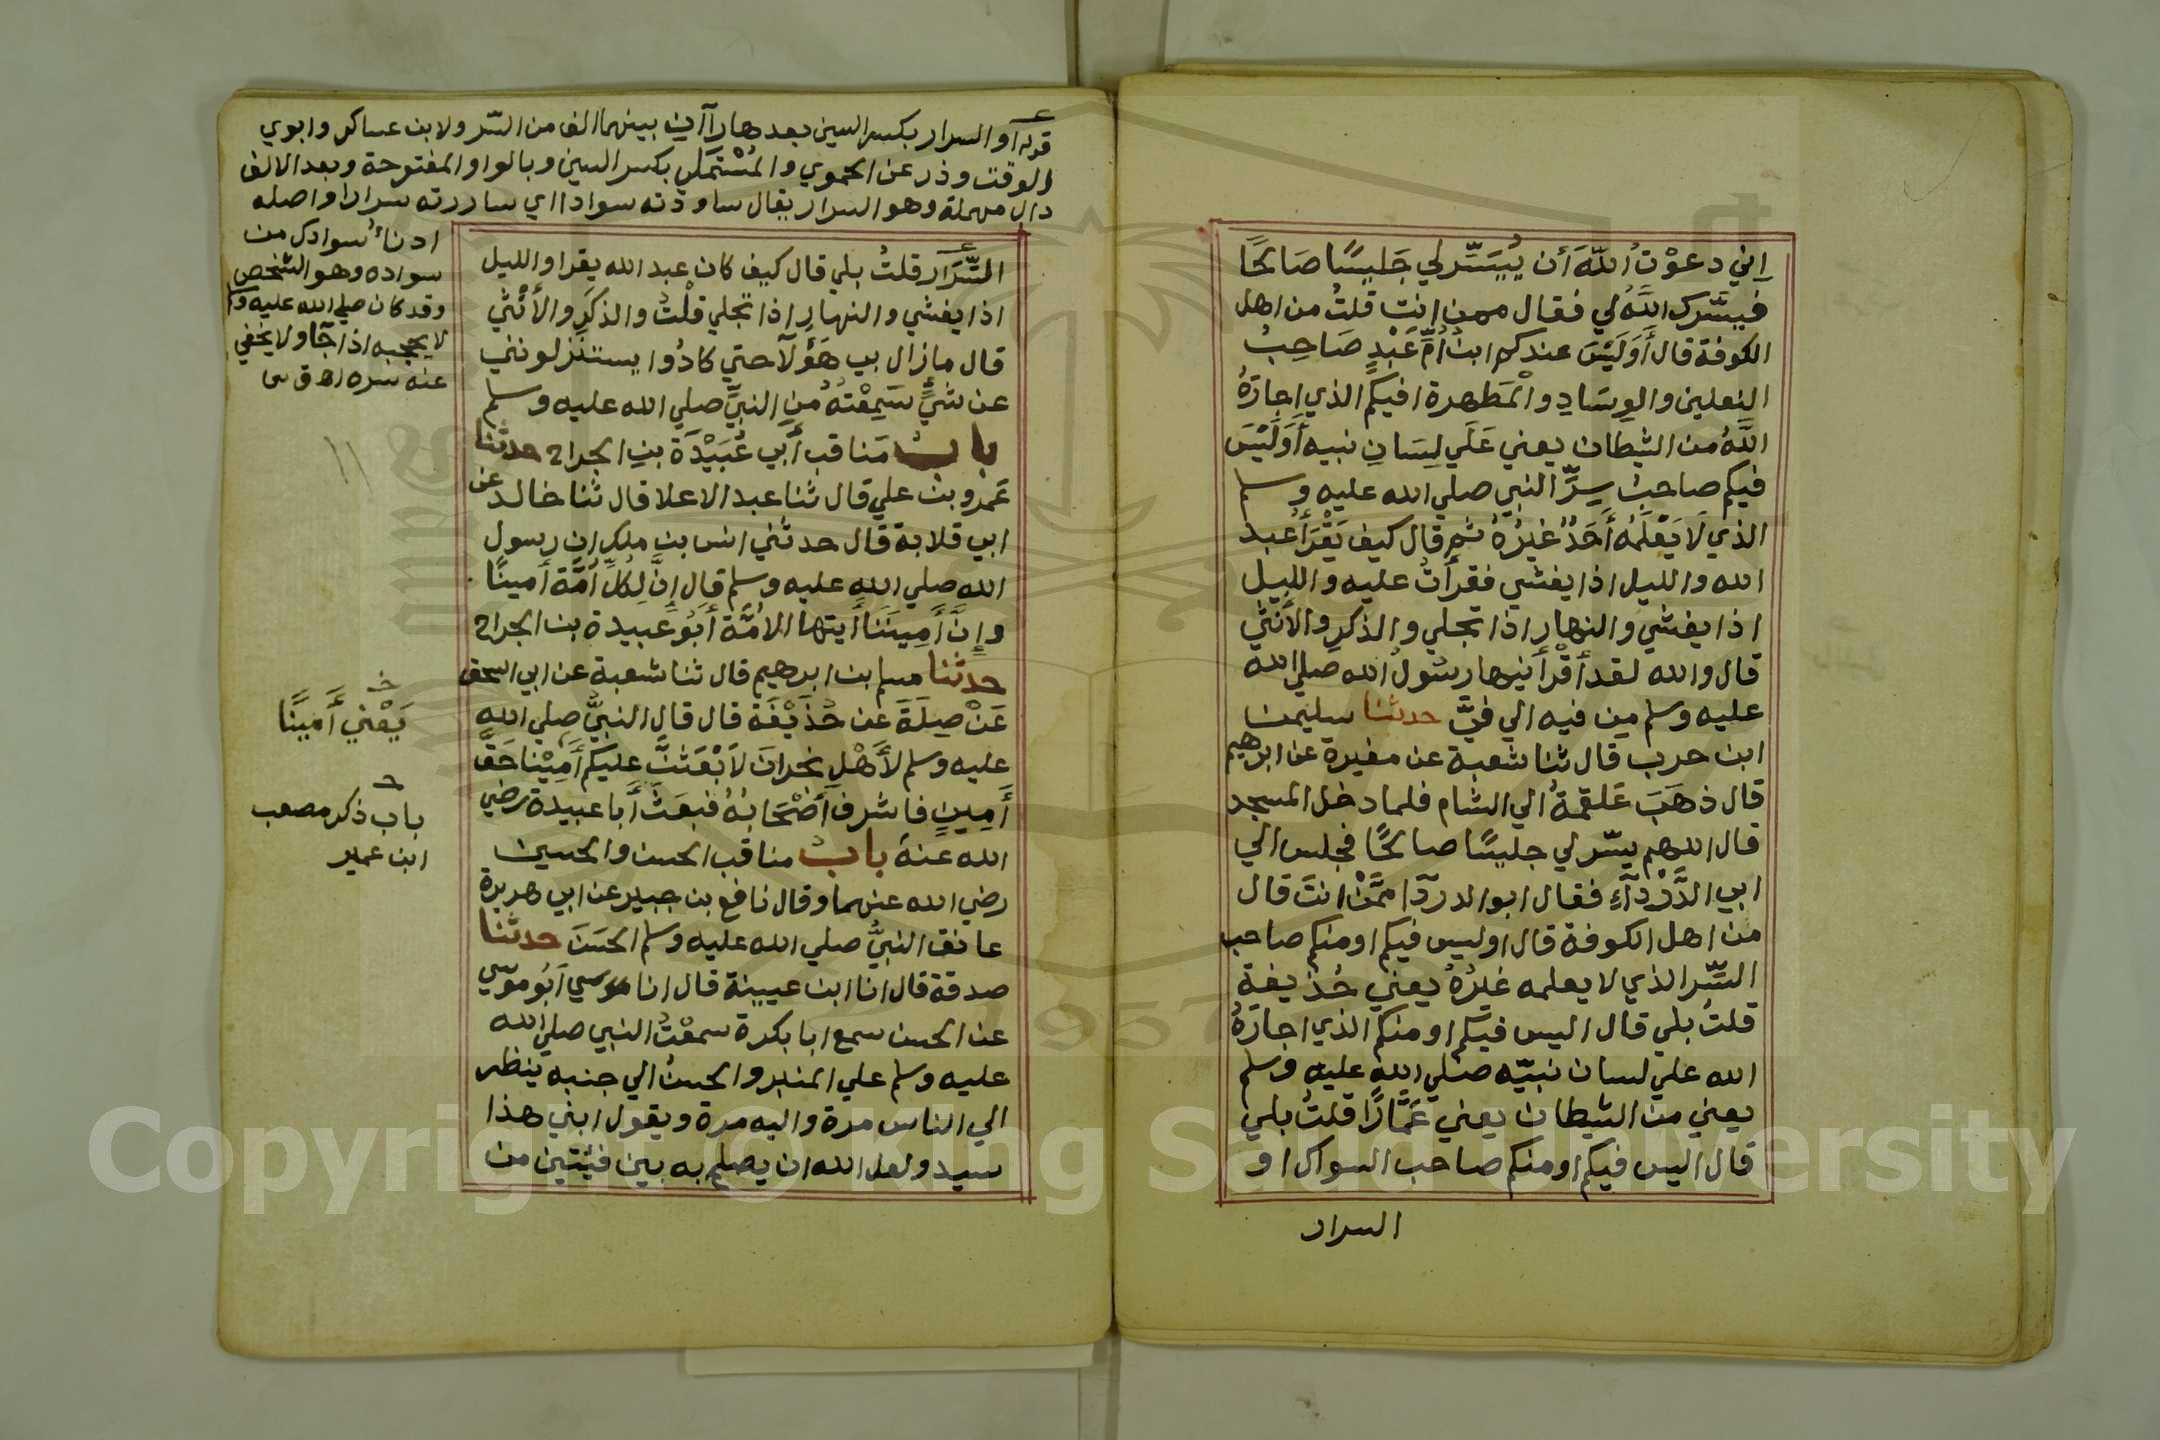 اِني دعوْتُ اللّهَ أن يُيَسِّرلي جَليسًا صَالحًا
فيسَّرك اللّهُ لي فقال ممن انت قلتُ من اهل
الكوفة قال أَوَلَيْسَ عندكم ابنُ اُمِّ عَبْدٍ صَاحِبُ
النعلين والوِسَادِ والْمَطهرة افيكم الذي اجارَهُ
اللّهُ من الشيطان يعني عَلَي لِسَانِ نبيه أَوَلَيْسَ
فيكم صاحبُ سِرِّ النبي صلي الله عليه وسلم
الذي لَا يَعْلَمُه أَحَدٌ غيرُهُ ثم قال كيف يَقْرَأُ عبد
الله والليل اذا يغشي فقرأتُ عليه والليل
اذا يغشي والنهارِ اذا تجلي والذكرِ والأنثي
قال والله لقد أقْرأنيها رسُولُ الله صلي الله
عليه وسلم مِن فيه الي فيَّ حدثنا سليمن
ابن حرب قال ثنا شعبة عن مغيرة عن ابرهيم
قال ذهَبَ عَلقمةُ الي الشام فلما دخل المسجد
قال اللهم يسّر لي جليسًا صالحًا فجلس الي
ابي الدَّرْدآءِ فقال ابو الدردآ ممَّنْ انتَ قال
من اهل الكوفة قال اوليس فيكم او منكم صاحب
السِّر الذي لا يعلمه غيرُهُ يعني حُذيفة
قلتُ بلي قال اليس فيكم او منكم الذي اجارَهُ
الله علي لسان نبيّه صلي الله عليه وسلم
يعني من الشيطان يعني عَمَّارًا قلتُ بلي
قال اليس فيكم او منكم صاحب السواك او
السرار
قوله او السرار بكسر السين بعدها رآآن بينهما الف من السّر ولابن عساكر وابوي
الوقت وذر عن الحموي والمُسْتَملي بكسر السين وبالواو المفتوحة وبعد الالف
دال مهملة وهو السرار يقال ساودته سوادا اي ساررته سرارا واصله
ادناءُ سوادك من
سواده وهو الشخص
وقد كان صلي الله عليه وسلم
لا يحجبه اذا جآ ولا يخفي
عنه سره اهـ ق س
السِّرَار قلتُ بلي قال كيف كان عبد الله يقرا والليل
اذا يغشي والنهارِ اذا تجلي قلْتُ والذكَرِ والأُنْثي
قال مازال بي هَؤلآ حتي كادُوا يستنزلونني
عن شيءٍ سَمِعْتُهُ مُن النبيِّ صلي الله عليه وسلم
بابُ مَناقبِ أَبي عُبَيْدَةَ بنِ الجراح حدثنا
عَمرو بن علي قال ثنا عبد الاعلا قال ثنا خالد عن
ابي قلابة قال حدثني انس بن ملك ان رسول
الله صلي الله عليه وسلم قال اِنَّ لِكُلِّ اُمَّة أَمينًا
وإِنَّ أَمِينَنَا أَيتها الاُمَّة أبُو عُبيدة بن الجراح
حدثنا مسلم بن ابرهيم قال ثنا شعبة عن ابي اسحق
عَنْ صِلَةَ عن حُذَيْفَة قال قال النبيُّ صلي الله
عليه وسلم لأَهْلِ نجران لَأبْعَثنَّ عليكم أَمِيْنا حَقَّ
أَمِينٍ فاشرف أَصْحَابُهُ فبعَثَ أَبا عبيدة رضي
الله عنهُ بابُ مناقب الحسن والحسين
رضي الله عنهما وقال نافع بن جبير عن ابي هريرة
عانق النبيُّ صلي الله عليه وسلم الحسَنَ حدثنا
صدقة قال انا ابن عيينة قال انا موسي أبُو موسي
عن الحسن سمع ابا بكرة سمعْتُ النبي صلي الله
عليه وسلم علي المنبر والحسنُ الي جنبه ينظر
الي الناس مرة واليه مرة ويقول ابني هذا
سيد ولعل الله ان يصلح به بين فيئتين من
خـ
يَعْني أَمينًا
حـ
باب ذكر مصعب
ابن عمير
Copyright © King Saud University
1957